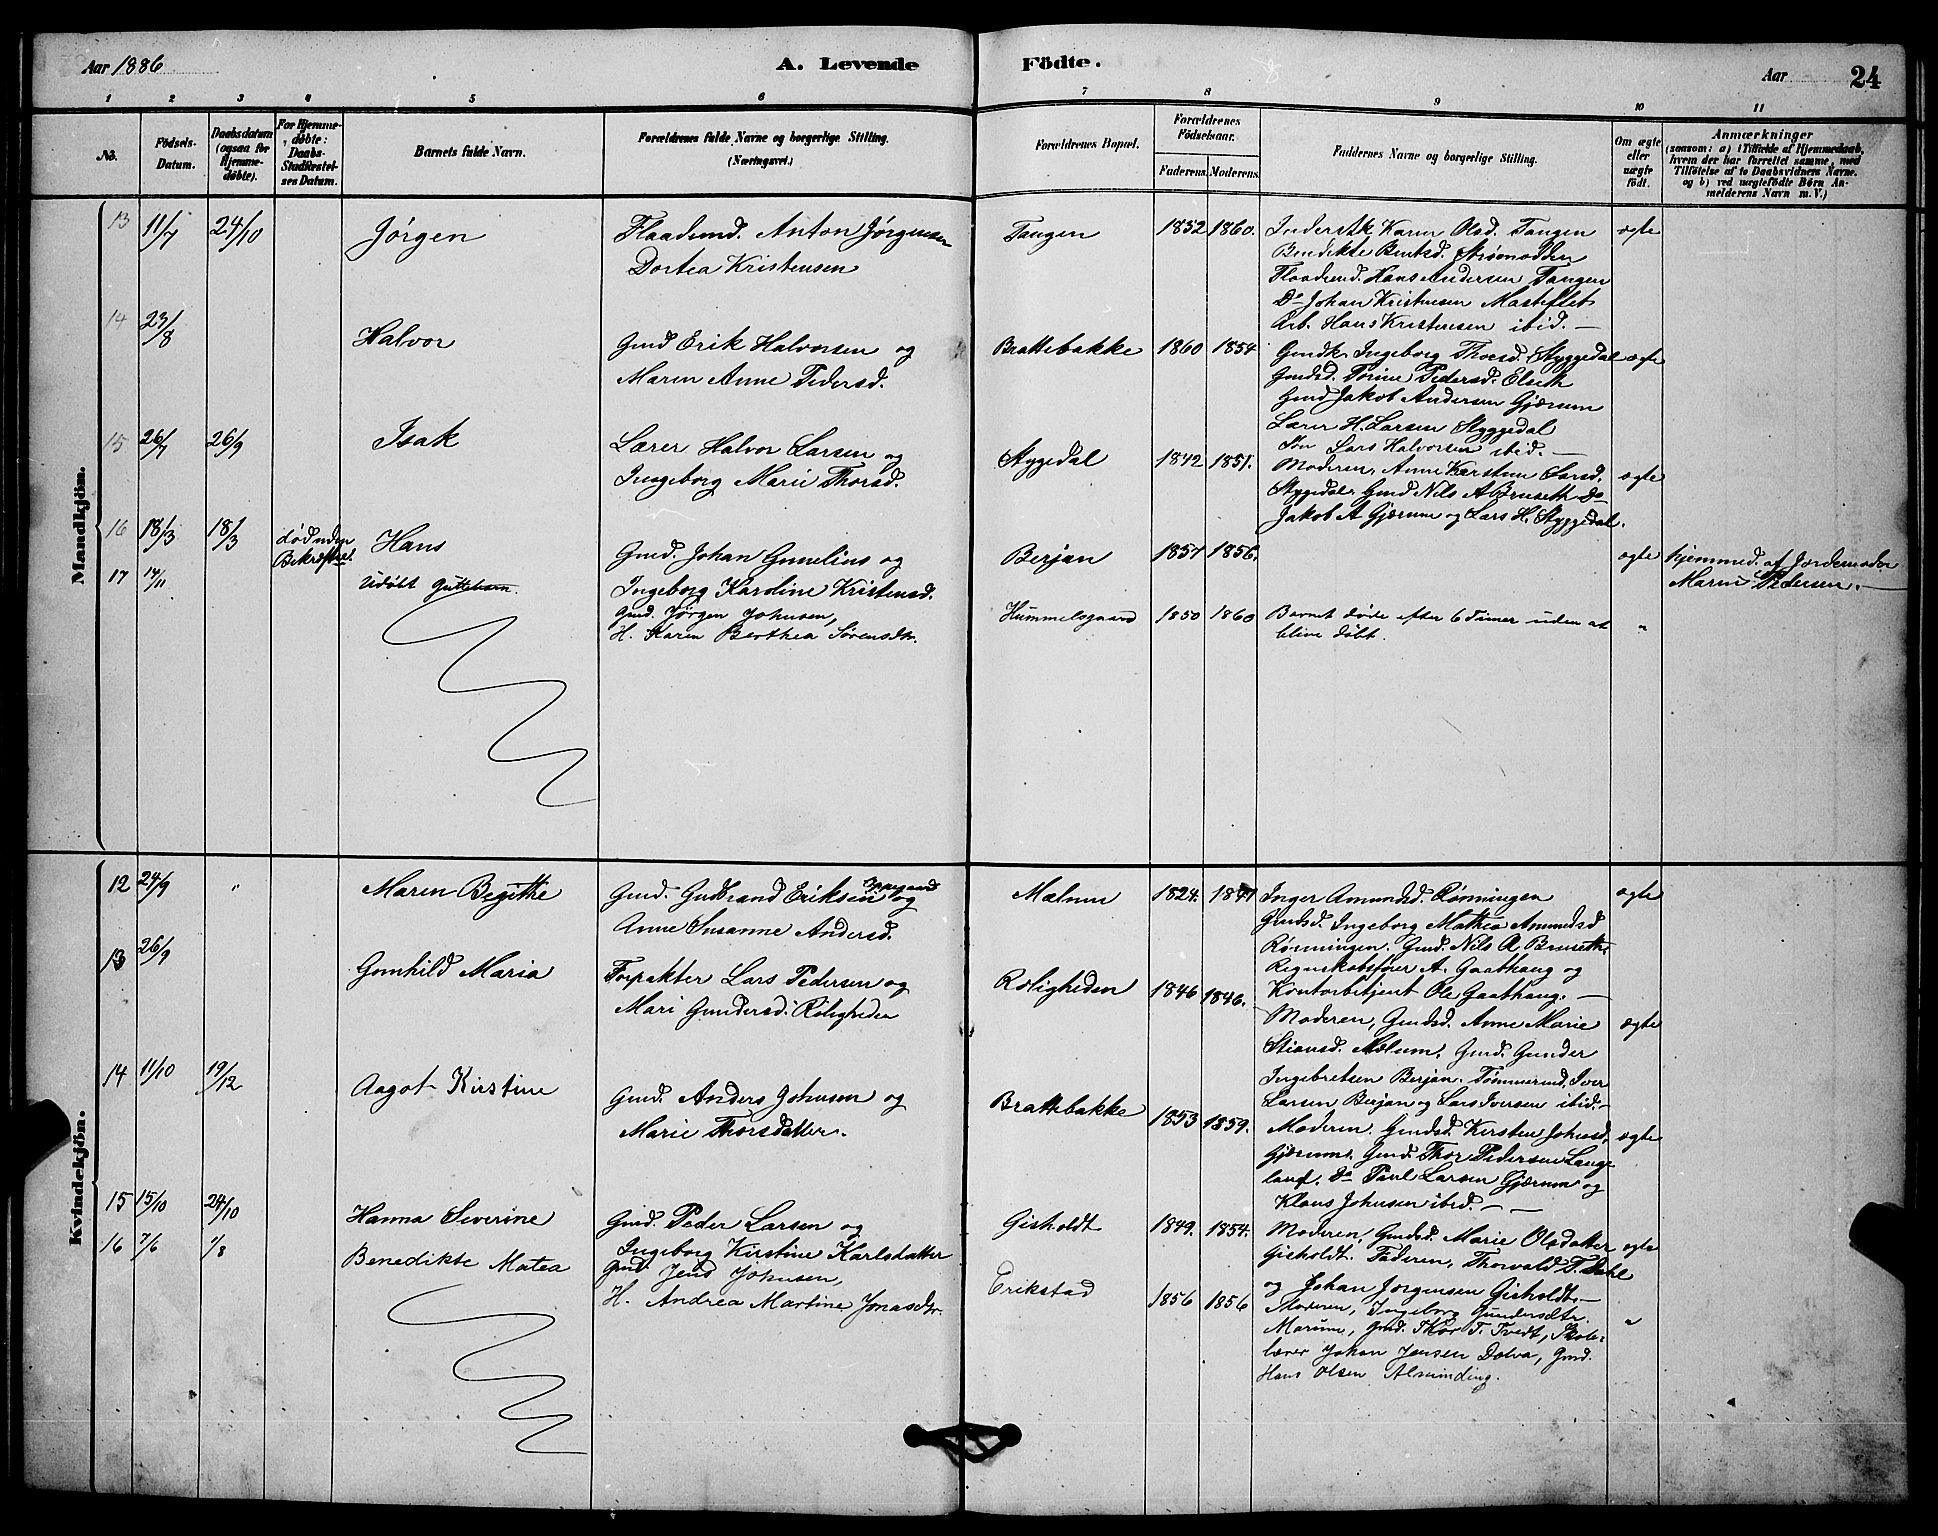 Aar 1886
A. Levende
Födte.
Aar
24
1 2 3 4 5 6 7 8 9 10 11
No.
Födsels-Datum.
Daabsdatum (ogsaa for Hjemme-döbte).
For Hjemme-döbte: Daabs-Stadfæstel-ses Datum.
Barnets fulde Navn.
Forældrenes fulde Navne og borgerlige Stilling.
(Næringsvei.)
Forældrenes Bopæl.
Forældrenes Födselsaar.
Faderens. Moderens.
Faddernes Navne og borgerlige Stilling.
Om ægte eller uægte födt.
Anmærkninger
(saasom: a) i Tilfælde af Hjemmedaab,
hvem der har forrettet samme, med
Tilföielse af to Daabsvidners Navne.
og b) ved uægtefödte Börn An-
melderens Navn m. V.)
Mandkjön.
13 11/7 24/10 Jørgen
Flaadmd. Anton Jørgensen
Dortea Kristensen
Tangen 1852 1860.
Inderstk Karen Olsd. Tangen ægte
Benedikte Bentsd. Strømodden
Flaadmd. Hans Andersen Tangen
Do Johan Kristensen Masteflet
Arb. Hans Kristensen ibid. —
14 23/8 Halvor
Gmd Erik Halvorsen og
Maren Anne Pedersd.
Brattebakke 1860 1854
Gmdk. Ingeborg Thorsd. Styggedal ægte
Gmdsd. Torine Pedersd. Elseth
Gmd Jakob Andersen Gjærum
Lærer H. Larsen Styggedal
Søn Lars Halvorsen ibid. —
15 26/7 26/9 Isak
Lærer Halvor Larsen og
Ingeborg Marie Thorsd.
Stygedal 1842 1851.
Moderen, Anne Karstine Larsd. ægte
Stygedal, Gmd Nils A Bruseth Do
Jakob A Gjærum og Lars H. Styggedal.
16 18/3 18/3 død uden Bekræftels. Hans
Gmd. Johan Gunelius og
Ingeborg Karoline Kristensd.
Berjan 1857 1856.
ægte
hjemmed. af Jordemoder
Maren Pedersen. —
17 17/11 Udöbt Guttebarn.
Gmd. Jørgen Johnsen,
H. Karen Berthea Sørensdtr.
Hummelsgaard 1850 1860
Barnet døde efter 6 Timer uden at "
blive döbt.
Kvindekjön.
12 24/9 " Maren Begithe
Gmd. Gudbrand Eriksen og
Anne Susanne Andersd.
Mælum 1824. 1847
Inger Amundsd. Rønningen ægte
Gmdsd. Ingeborg Mathea Amundsd
Rønningen. Gmd. Nils A. Bruseth.
Regnskabsfører A. Gaathaug og
Kontorbetjent Ole Gaathaug. —
13 26/9 Gunhild Maria
Forpakter Lars Pedersen og
Mari Gundersd. Roligheden
Roligheden 1846 1846.
Moderen, Gmdsd. Anne Marie ægte
Stiansd. Mælum, Gmd. Gunder
Ingebretsen Berjan. Tømmermd. Iver
Larsen Berjan og Lars Iversen ibid. —
14 11/10 19/12 Aagot Kirstine
Gmd. Anders Johnsen og
Marie Thorsdatter.
Brattebakke 1853 1859.
Moderen. Gmdsd. Kirsten Johnsd. ægte
Gjærum. Gmd. Thor Pedersen Lange
land. Do Paul Larsen Gjærum og
Klaus Johnsen ibid. — —
15 15/10 24/10 Hanna Severine
Gmd. Peder Larsen og
Ingeborg Kirstine Karlsdatter
Gisholdt 1849. 1854.
Moderen, Gmdsd. Marie Olsdatter ægte
Gisholdt. Faderen, Thorvald T. Dahl
og Johan Jørgensen Gisholdt. —
16 7/6 1/8 Benedikte Matea
Gmd. Jens Johnsen,
H. Andrea Martine Jonasdtr.
Erikstad 1856 1856
Moderen, Ingeborg Gundersdtr. "
Marum, Gmd. Thor T. Tvedt, Skole-
lærer Johan Jensen Dolva, Gmd.
Hans Olsen Alminding.